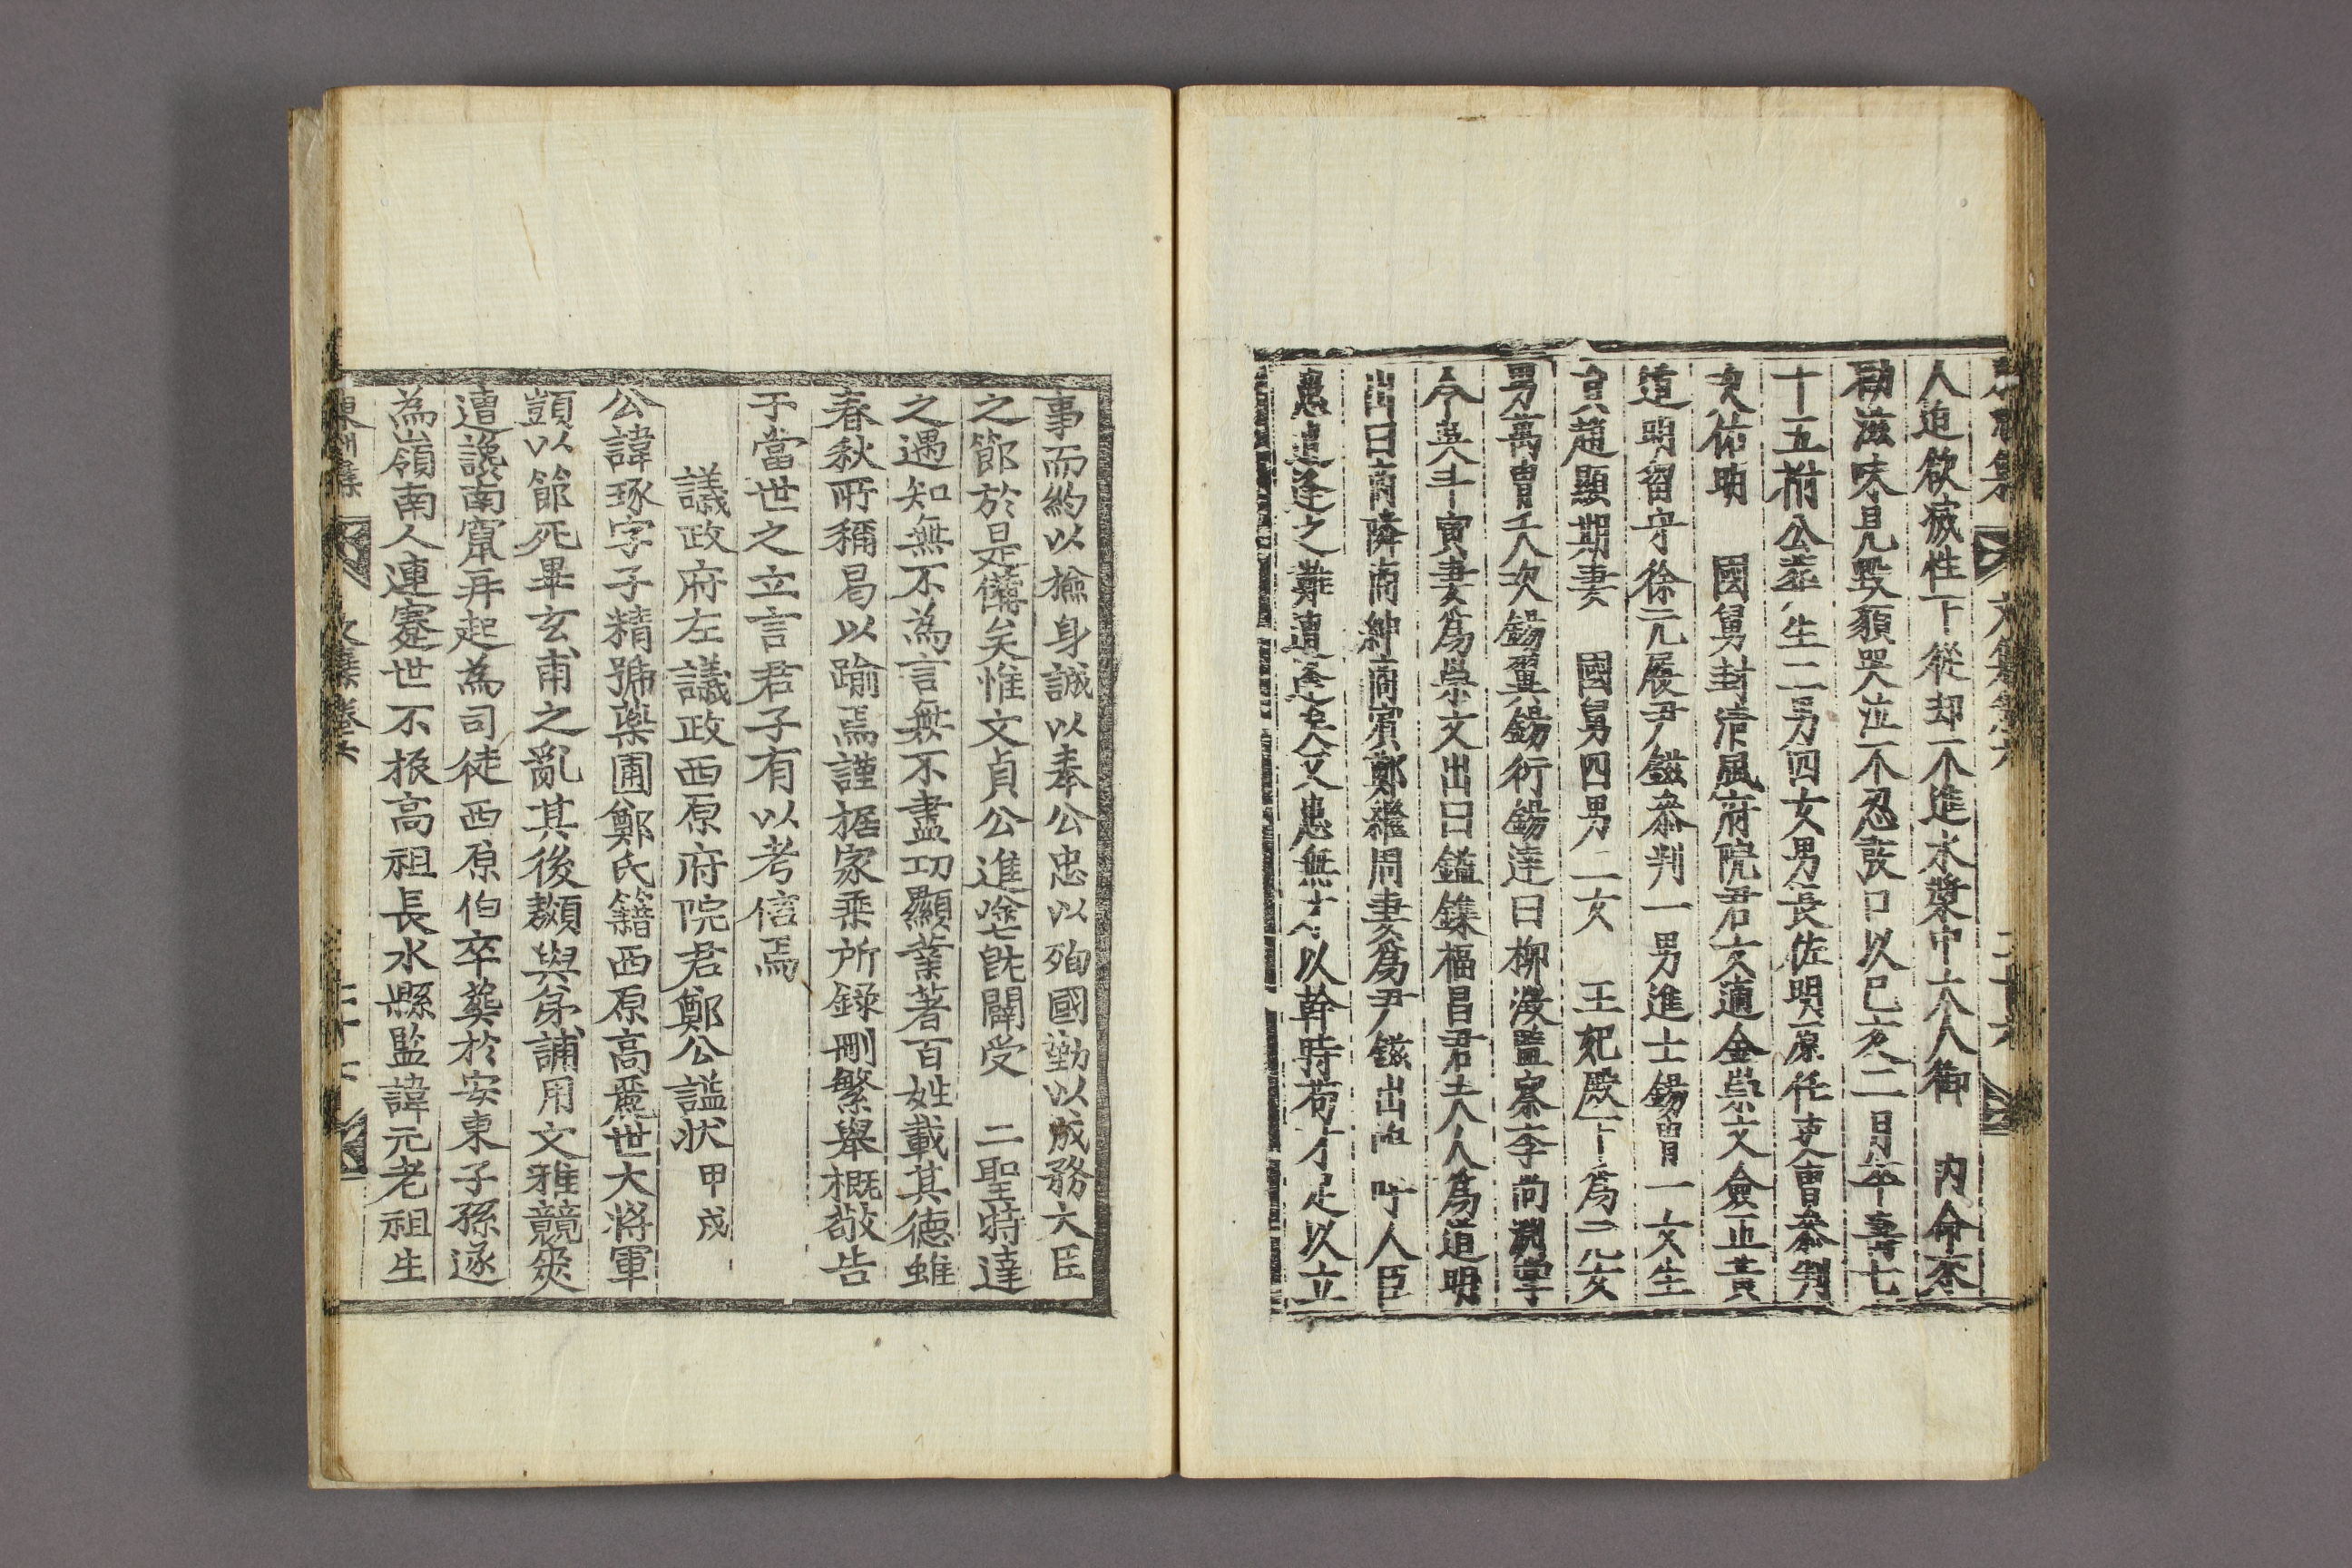 人迫欲滅性下從却不進水漿中夫人御 內命本
勸滋味且見毀顏哭泣不忍喪口以己亥二月卒壽七
十五祔公葬生二男四女男長佐明原任吏曹參判
次佑明 國舅封清風府院君女適金崇文僉正黃
道明留守徐元履尹鎡參判一男進士錫胄一女生
貟趙顯期妻 國舅四男二女 王妃殿下爲元女
男萬胄壬人次錫翼錫衍錫達曰柳湛監察李尚淵掌
令吳斗寅妻爲崇文出曰鎰鏶福昌君夫人爲道明
出曰商隣商紳商賓鄭繼周妻爲尹鎡出 吁人臣
患遭逢之難遭逢矣又患無才以幹時苟才足以立
事而約以檢身誠以奉公忠以殉國勤以成務大臣
之節於是備矣惟文貞公進塗旣闢受 二聖特達
之遇知無不為言無不盡功顯業著百姓載其德雖
春秋所稱曷以踰焉謹据家乘所錄刪繁舉概敬告
于當世之立言君子有以考信焉
議政府左議政西原府院君鄭公謚狀 甲戌
公諱琢字子精號藥圃鄭氏籍西原高麗世大將軍
顗以節死畢玄甫之亂其後頲與弟誧用文雅競爽
遭讒南竄再起為司徒西原伯卒葬於安東子孫遂
為嶺南人連蹇世不振高祖長水縣監諱元老祖生
東州集 文集卷六